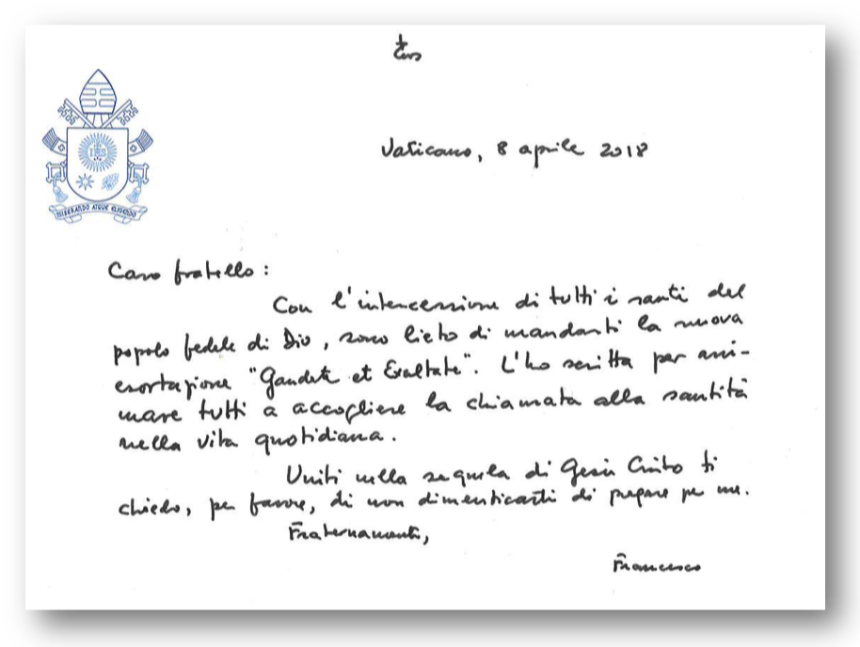 Vaticano, 8 aprile 2018
MISERANDO ATQUE ELIGENDO
Caro fratello:
Con l'intercessione di tutti i santi del
popolo fedele di Dio, sono lieto di mandarti la nuova
esortazione "Gaudete et Exultate". L'ho scritta per ani-
mare tutti a accogliere la chiamata alla santità
nella vita quotidiana.
Uniti nella sequela di Gesù Cristo ti
chiedo, per favore, di non dimenticarti di pregare per me.
Fraternamente,
Francesco